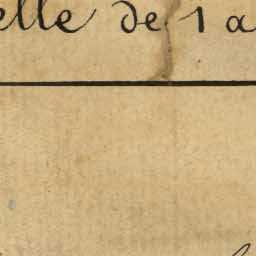 elle de 1 a